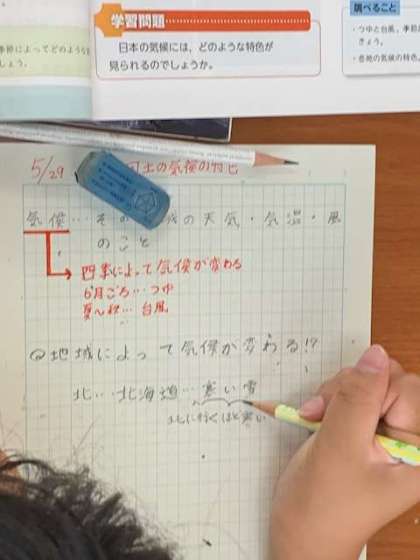 季節によってどのような
しょう。
学習問題
日本の気候には、どのような特色が
見られるのでしょうか。
調べること
・つゆと台風、季節
きょう。
・各地の気候の特色。
5/29 国土の気候の特色
気候…その 域の天気・気温・風
のこと
四季によって気候が変わる
6月ごろ…つゆ
夏〜秋…台風
地域によって気候が変わる!?
北…北海道…寒い雪
北に行くほど寒い